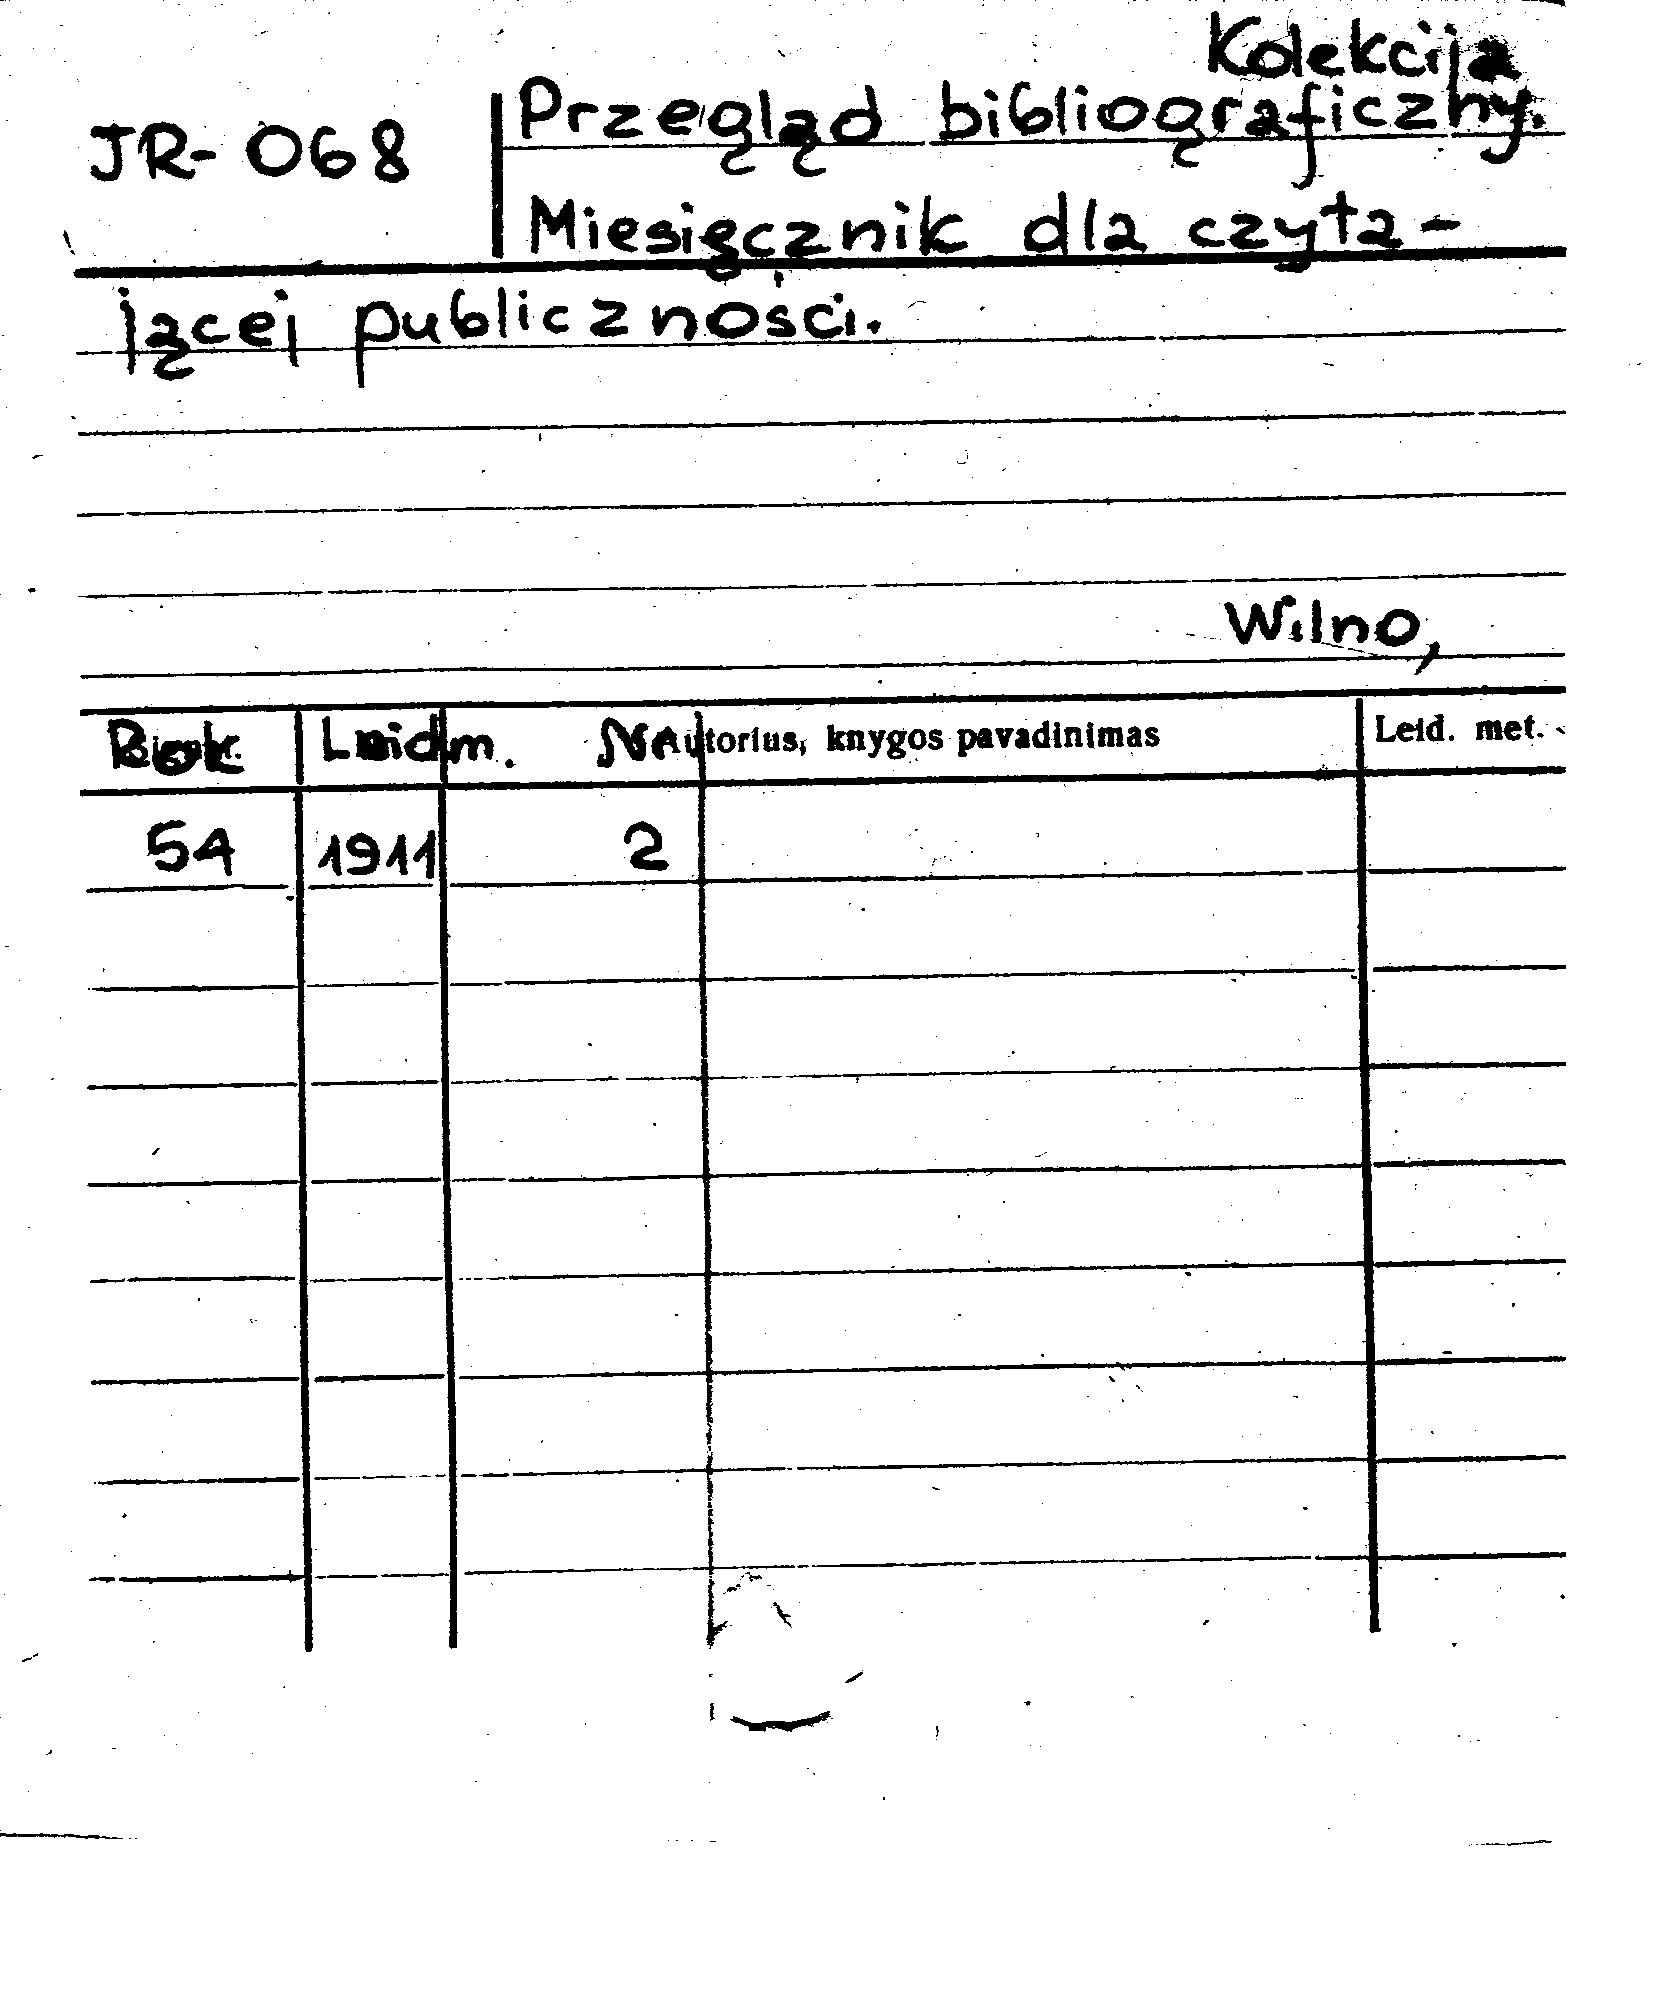 Kolekcija
JR-068 Przegląd bibliograficzny.
Miesięcznik dla czyta-
jącej publiczności.
Wilno,
L. m. Nr Autorius, knygos pavadinimas Leid. met.
54 1911 2